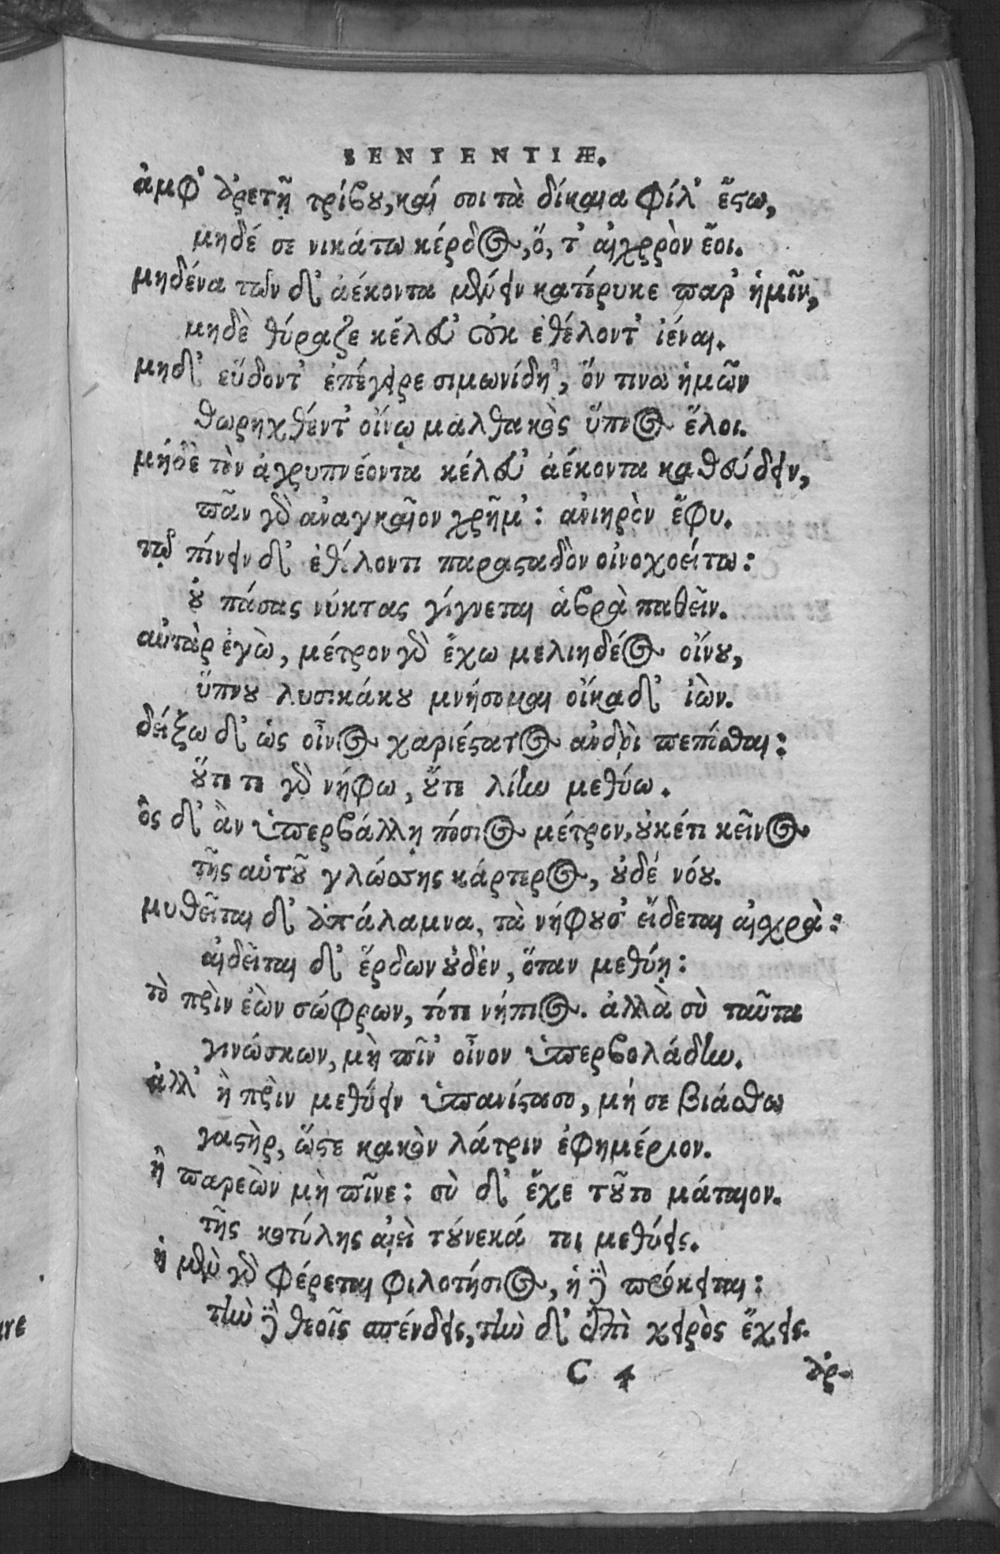 SENTENTIÆ.
ἀμφ' ἀρετῇ τρίβου, καί σοι τὰ δίκαια φίλ' ἔστω,
μηδέ σε νικάτω κέρδος, ὅ, τ' αἰχρρὸν ἔοι.
μηδένα τῶν δ' ἀέκοντα μένειν κατέρυκε παρ' ἡμῖν,
μηδὲ θύραζε κέλευ' οὐκ ἐθέλοντ' ἰέναι.
μηδ' εὕδοντ' ἐπέγειρε σιμωνίδη, ὅν τινα ἡμῶν
θωρηχθέντ' οἴνῳ μαλθακὸς ὕπνος ἕλοι.
μήδε τὸν ἀγρυπνέοντα κέλευ' ἀέκοντα καθεύδειν,
πᾶν γὰρ ἀναγκαῖον χρῆμ': ἀνιηρὸν ἔφυ.
τῷ πίνειν δ' ἐθέλοντι παρασταδὸν οἰνοχοείτω:
οὐ πάσας νύκτας γίγνεται ἁβρὰ παθεῖν.
αὐτὰρ ἐγὼ, μέτρον γὰρ ἔχω μελιηδέος οἴνου,
ὕπνου λυσικάκου μνήσομαι οἴκαδ' ἰὼν.
δείξω δ' ὡς οἶνος χαριέστατος ἀνδρὶ πεπόσθαι:
οὔτε τι γὰρ νήφω, οὔτε λίην μεθύω.
ὃς δ' ἂν ὑπερβάλλῃ πόσιος μέτρον, οὐκέτι κεῖνος
τῆς αὑτοῦ γλώσσης κάρτερος, οὐδέ νόου.
μυθεῖται δ' ἀπάλαμνα, τὰ νήφουσ' εἴδεται αἰσχρὰ:
αἰδεῖται δ' ἕρδων οὐδὲν, ὅταν μεθύῃ:
τὸ πρὶν ἐὼν σώφρων, τότε νήπιος. ἀλλὰ σὺ ταῦτα
γινώσκων, μὴ πῖν' οἶνον ὑπερβολάδην.
ἀλλ' ἢ πρὶν μεθύειν ὑπανίστασο, μή σε βιάσθω
γαστὴρ, ὥστε κακὸν λάτριν ἐφημέριον.
ἢ παρεὼν μὴ πῖνε: σὺ δ' ἔχε τοῦτο μάταιον.
τῆς κοτύλης αἰεὶ τούνεκά τοι μεθύεις.
ἡ μὲν γὰρ φέρεται φιλοτήσιος, ἡ δὲ πρόκειται:
τὴν δὲ θεοῖς σπένδεις, τὴν δ' ἐπὶ χειρὸς ἔχεις.
C 4 ἀρ-